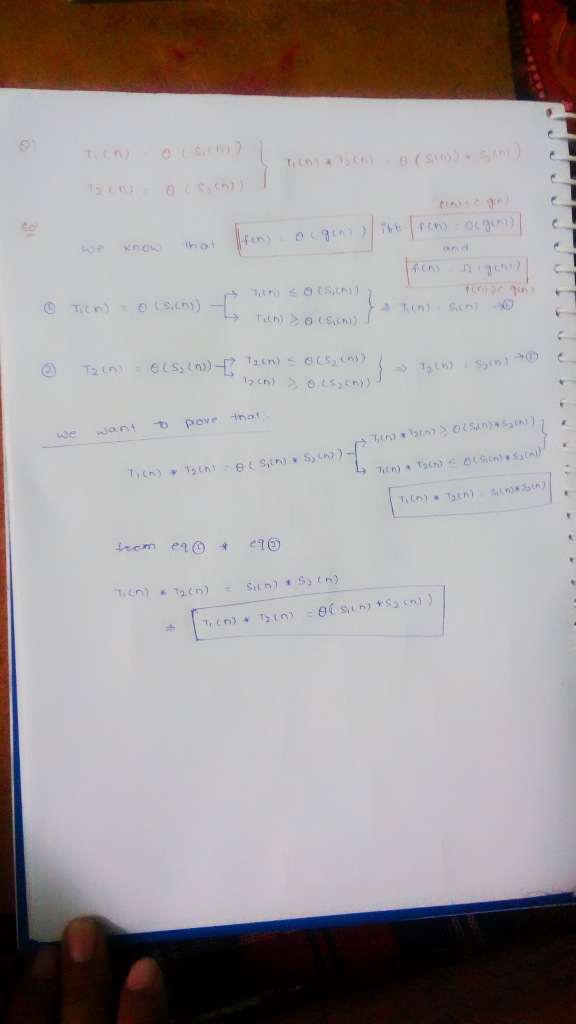 Q) T₁(n) = θ(S₁(n)) } T₁(n) * T₂(n) = θ(S₁(n)) * S₂(n))
T₂(n) = θ(S₂(n))
Sol
f(n) ≤ c g(n)
we know that f(n) = θ(g(n)) iff f(n) = O(g(n))
and
f(n) = Ω(g(n))
f(n) ≥ c g(n)
① T₁(n) = θ(S₁(n)) → T₁(n) ≤ θ(S₁(n))
→ T₁(n) ≥ θ(S₁(n)) } ⇒ T₁(n) = S₁(n) →①
② T₂(n) = θ(S₂(n)) → T₂(n) ≤ θ(S₂(n))
→ T₂(n) ≥ θ(S₂(n)) } ⇒ T₂(n) = S₂(n) →②
we want to prove that:
T₁(n) * T₂(n) = θ(S₁(n) * S₂(n)) → T₁(n) * T₂(n) ≥ θ(S₁(n) * S₂(n)) }
→ T₁(n) * T₂(n) ≤ θ(S₁(n) * S₂(n))
T₁(n) * T₂(n) = S₁(n) * S₂(n)
from eq① * eq②
T₁(n) * T₂(n) = S₁(n) * S₂(n)
⇒ T₁(n) * T₂(n) = θ(S₁(n) * S₂(n))